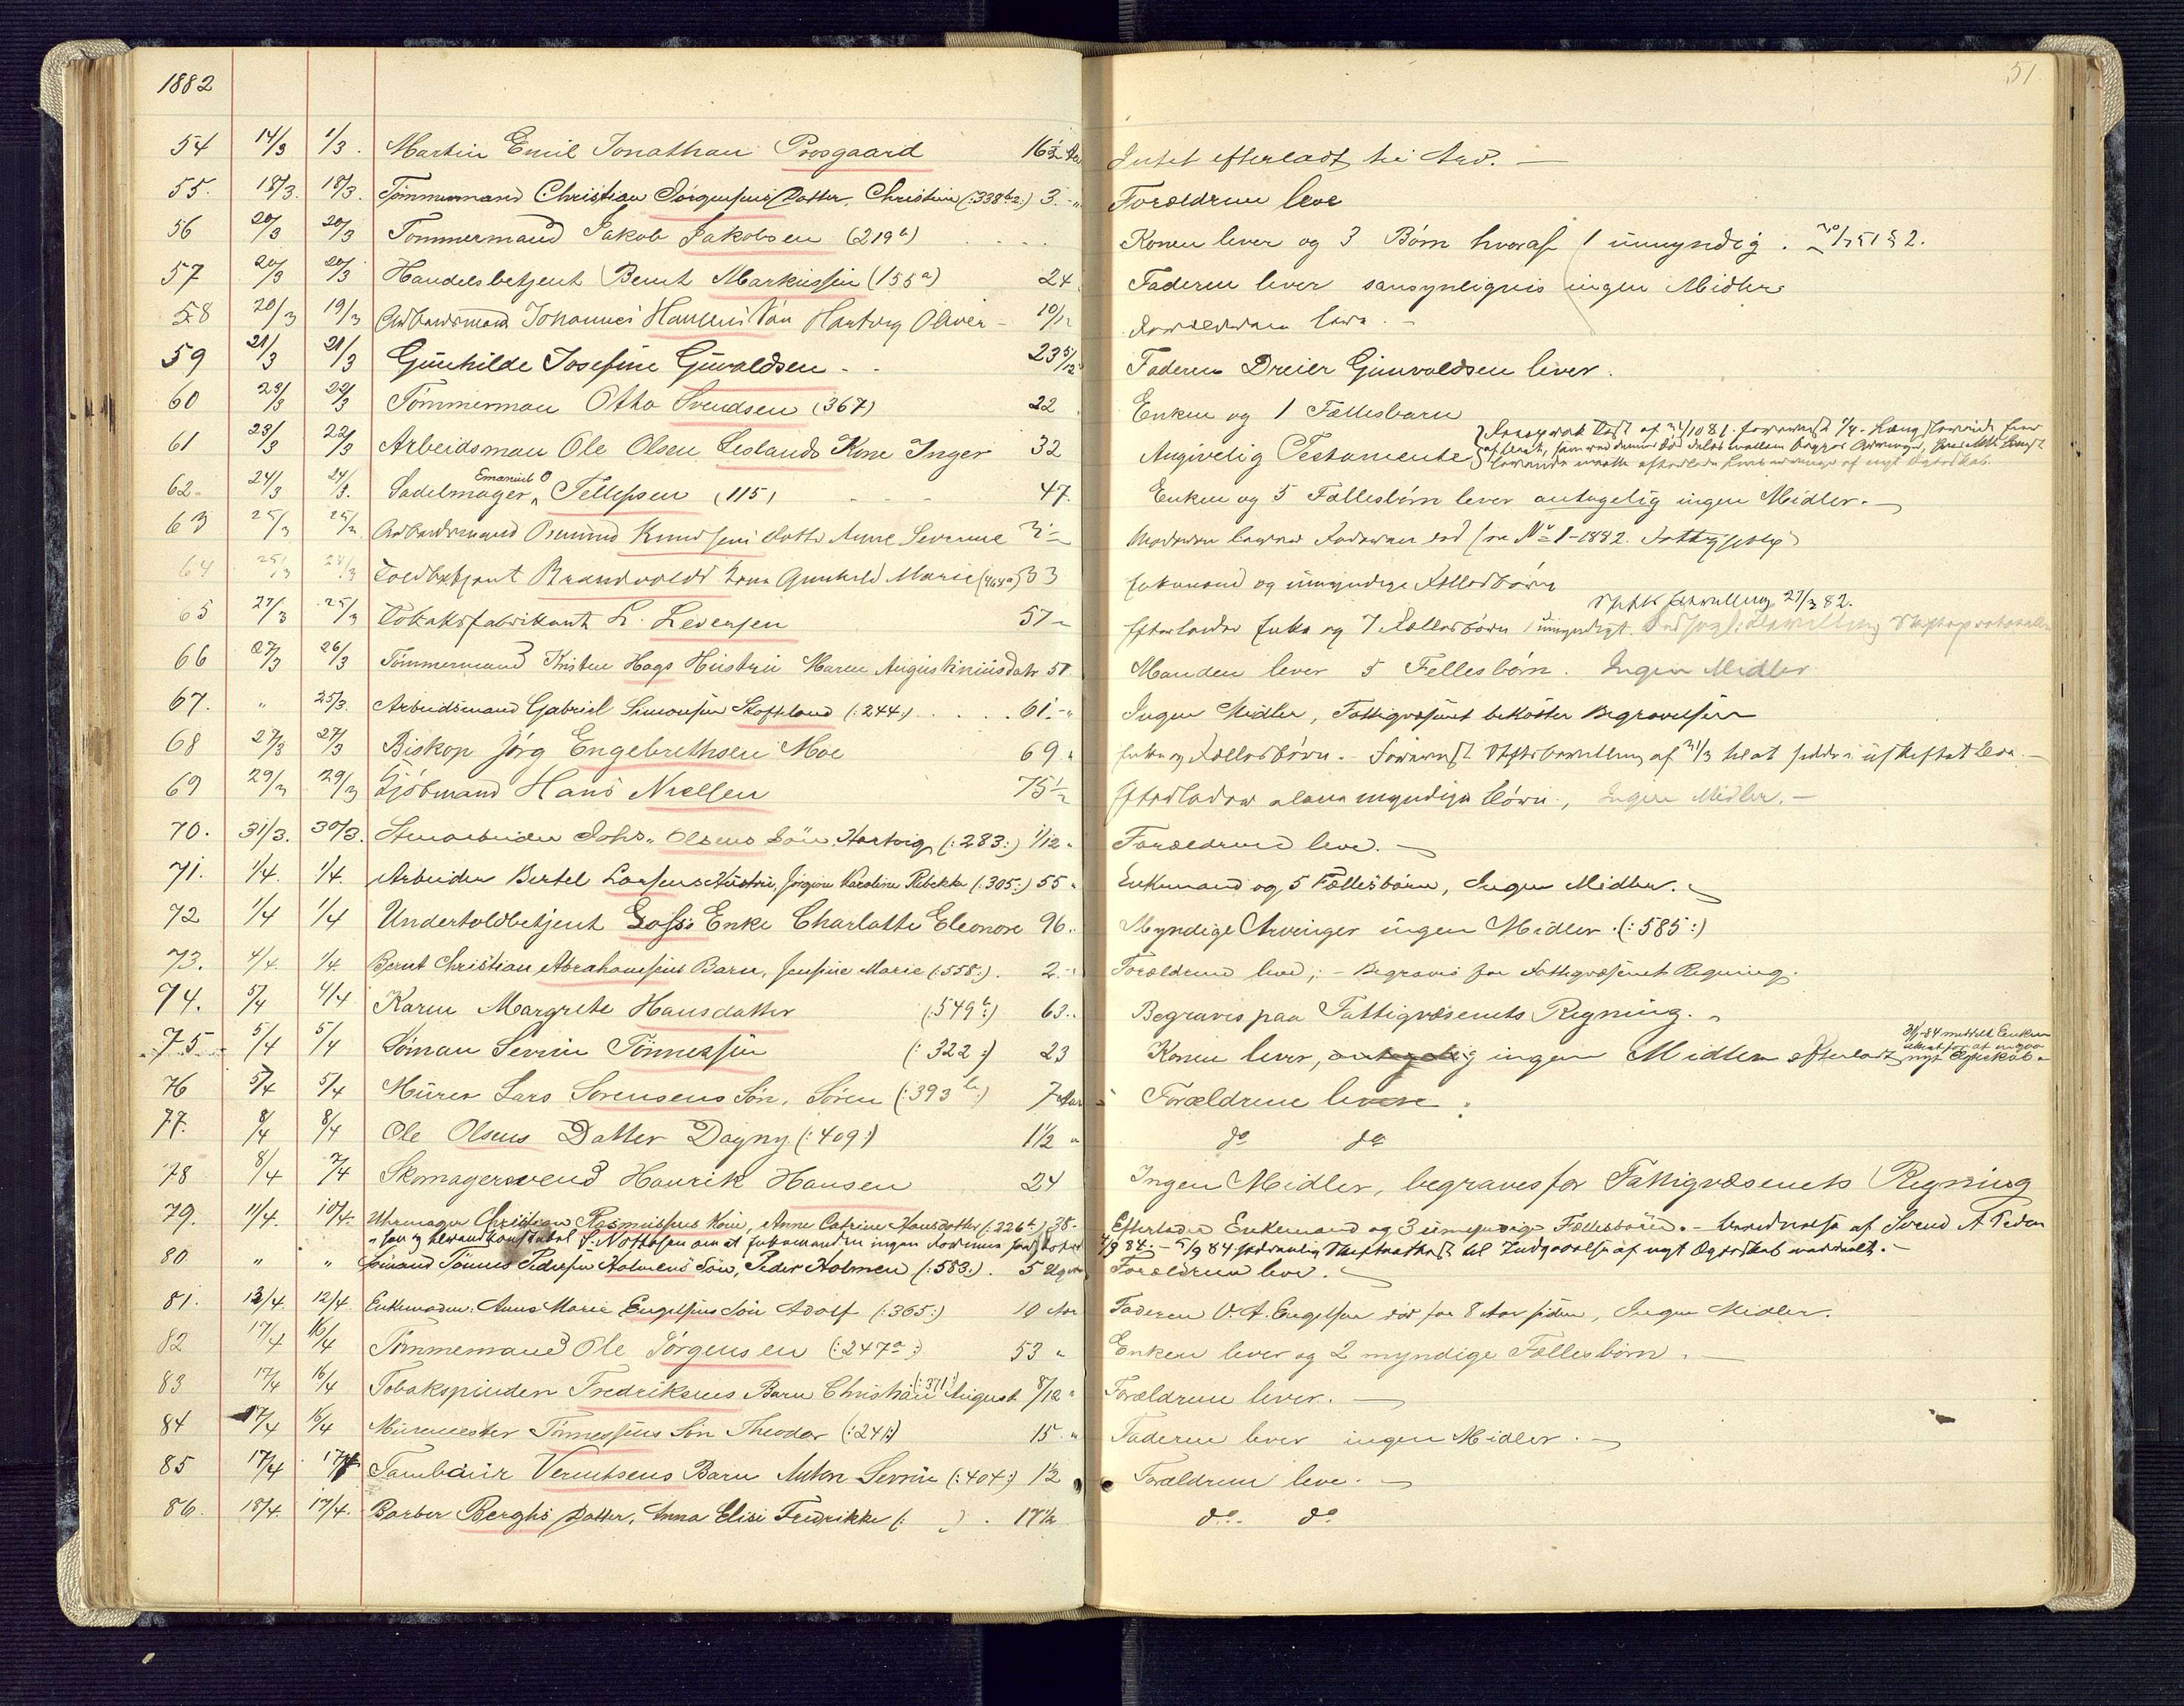 1882
51
54 14/3 1/3. Martin Emil Jonathan Prosgaard 16½ Aar Intet efterladt til Arv. —
55. 18/3. 18/3. Tømmermand Christian Jørgensens Datter, Christine (:338 b 2:) 3 - " Forældrene leve
56 20/3 20/3 Tømmermand Jakob Jakobsen (219 b) . . . . Konen lever og 3 Børn hvoraf 1 umyndig.
57 20/3 20/3 Handelsbetjent Bernt Markussen (155 a) 24 Faderen lever sansynligvis ingen Midler
58 20/3 19/3 Arbeidsmand Johannes Hansens Søn Hartvig Oliver - 10/12 Forældrene leve. -
59 21/3 21/3 Gunhilde Josefine Guvaldsen - . 23 5/12 Faderen Dreier Gunvaldsen lever.
60 23/3 22/3 Tømmerman Otto Svendsen (367) 22 Enken og 1 Fællesbarn
61 23/3 22/3 Arbeidsman Ole Olsen Leslands Kone Inger 32 Angivelig Testamente
62- 24/3 24/3. Sadelmager Emanuel O Tellefsen (115) - - - 47. Enken og 5 Fællesbørn lever antagelig ingen Midler. —
63 25/3 25/3 Arbeidsmand Osmund Knudsens Datter Anne Severine 3 ½ Moderen lever Faderen død (se No 1-1882.
64 25/3 24/3 Toldbetjent Brandvolds Kone Gunhild Marie (464 a) 33 Enkemand og umyndige Fællesbørn
65 27/3 25/3 Tobaksfabrikant L. Levensen 57 " Efterlader Enke og 7 Fællesbørn 1 umyndigt. Skifte bevilling 27/3 82.
66 27/3 26/3 Tømmermand Kristen Hags Hustru Maren Augustiniusdatr 51. Manden lever 5 Fellesbørn. Ingen Midler
67. " 25/3. Arbeidsmand Gabriel Simonsen Skoftland (:244:) . . . . 61. - " Ingen Midler, Fattigvæsenet bekoster Begravelsen
68 27/3 27/3 Biskop Jørg Engebrethsen Moe 69 " Enke og Fællesbørn. - Foreviist Skiftebevilling af 31/3 til at sidde i uskiftet Bo. —
69 29/3 29/3 Kjøbmand Hans Nielsen 75 ½ Efterlader alene myndige Børn., Ingen Midler. —
70. 31/3. 30/3. Stenarbeider Johs. Olsens Søn, Hartvig (:283:) 1/12 " Forældrene leve. —
71. 1/4. 1/4. Arbeider Bertel Larsens Hustru, Jørgine Karoline Rebekka (:305:) 55 " Enkemand og 5 Fællesbørn, Ingen Midler. —
72 1/4 1/4 Undertoldbetjent Gofss Enke Charlotte Eleonore 96. . Myndige Arvinger ingen Midler. (:585:)
73. 4/4. 1/4. Bernt Christian Abrahamsens Barn, Jensine Marie (:558:). 2. - " Forældrene leve; - Begraves for Fattigvæsenets Regning.
74. 5/4 4/4 Karen Margrete Hansdatter (:549 b:) 63. . Begraves paa Fattigvæsenets Regning. "
75 5/4 5/4 Søman Severin Tønnessen (:322:) 23 Konen lever, antagelig ingen Midler efterladt
76 5/4 5/4 Murer Lars Sørensens Søn, Søren (:393 b:) 7 Aar Forældrene leve.
77. 8/4 8/4 Ole Olsens Datter Dagny (:409:) 1½ " do do
78 8/4 7/4 Skomagersvend Henrik Hansen 24 Ingen Midler, begraves for Fattigvæsenets Regning
79. 11/4. 10/4. Uhrmager Christian Rasmussens Kone, Anne Catrine Hansdatter (:226 b:) 38 - Efterlader Enkemand og 3 umyndige Fællesbørn. -
80 " " Sømand Tønnes Pedersen Holmens Søn, Peder Holmen (:583:). 5 Uger Forældrene leve. —
81. 12/4. 12/4. Enkemadm: Anne Marie Engelsens Søn Adolf (:365:) 10 Aar Faderen O. A. Engelsen død for 8 Aar siden, Ingen Midler.
82 17/4 16/4 Tømmermand Ole Jørgensen (:247 a:) 53 " Enken lever og 2 myndige Fællesbørn. —
83 17/4 16/4 Tobakspinder Fredriksens Barn Christian August (:371:) 8/12 " Forældrene lever. —
84 17/4 16/4 Murmester Tønnessens Søn Theodor (:241:) 15 " Faderen lever ingen Midler. —
85 17/4 17/4 Tambour Verentsens Barn Anton Severin (:404:) 1½ Forældrene leve. —
86. 18/4. 17/4. Barber Berghs Datter, Anna Elise Fredrikke (: ) . 17½ do. do